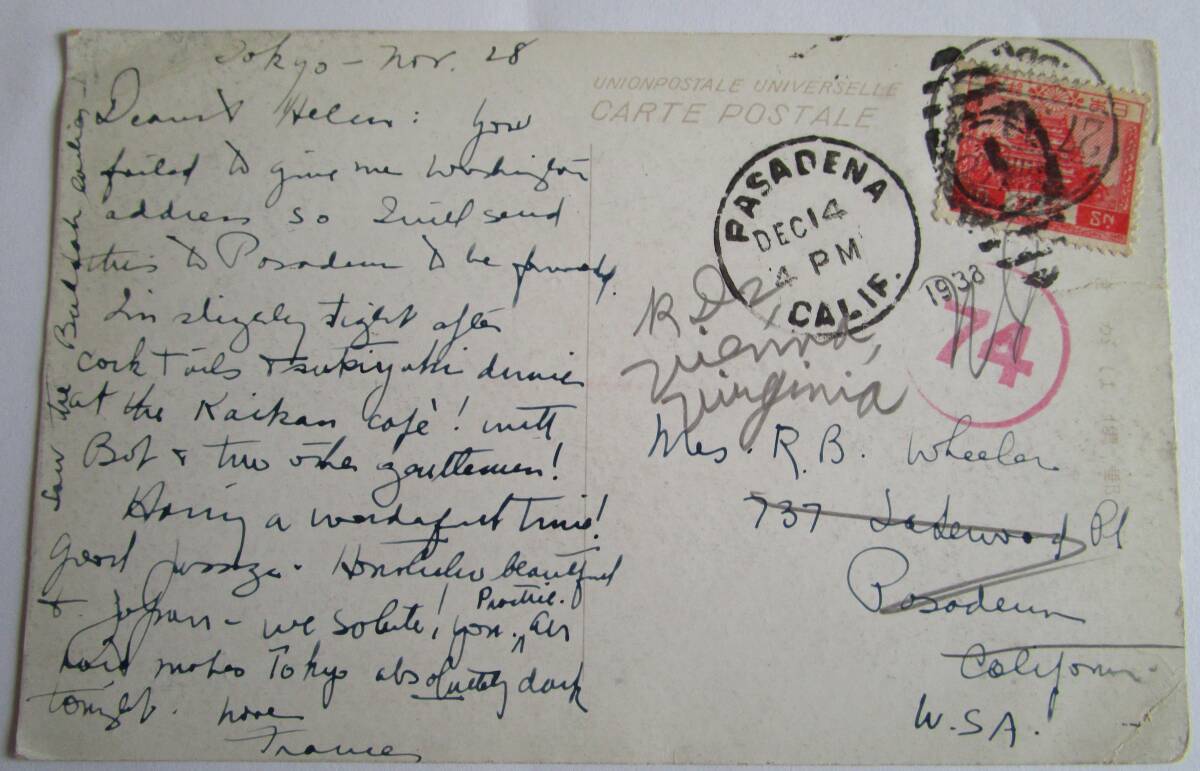 Tokyo - Nov. 28
Dearest Helen: You
failed to give me Washington
address so I will send
this to Pasadena to be forwarded.
I'm slightly tight after
cocktails & sukiyaki dinner
at the Kaikan café! with
Bob & two other gentlemen!
Having a wonderful time!
Good passage. Honolulu beautiful
& Japan - we salute! you. Practice Air
raid makes Tokyo absolutely dark
tonight. Love
Frances
Saw the Buddah
UNIONPOSTALE UNIVERSELLE
CARTE POSTALE
PASADENA
DEC 14
4 PM
CALIF.
1938
74
R D 2,
Vienna,
Virginia
Mrs. R. B. Wheeler
737 Ladewood Pl
Pasadena
California
U.S.A.